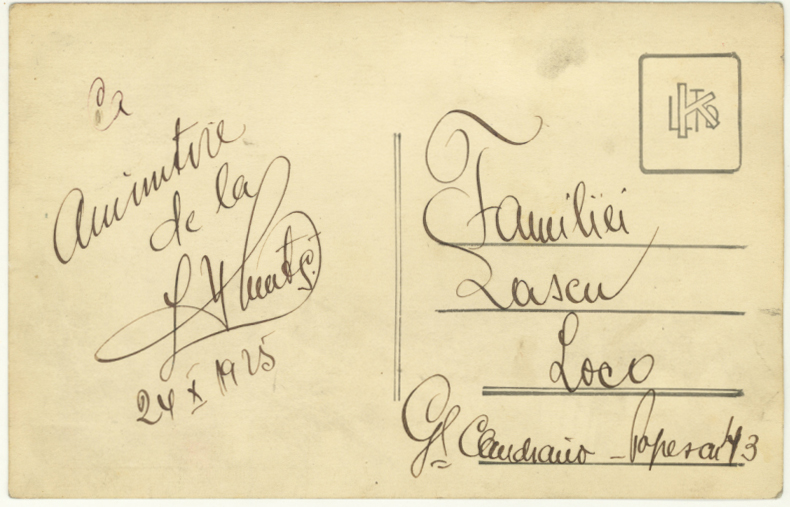 Ca
Amintire
de la
24 X 1925
Familiei
Lascu
Loco
Gl Candiano-Popescu 43